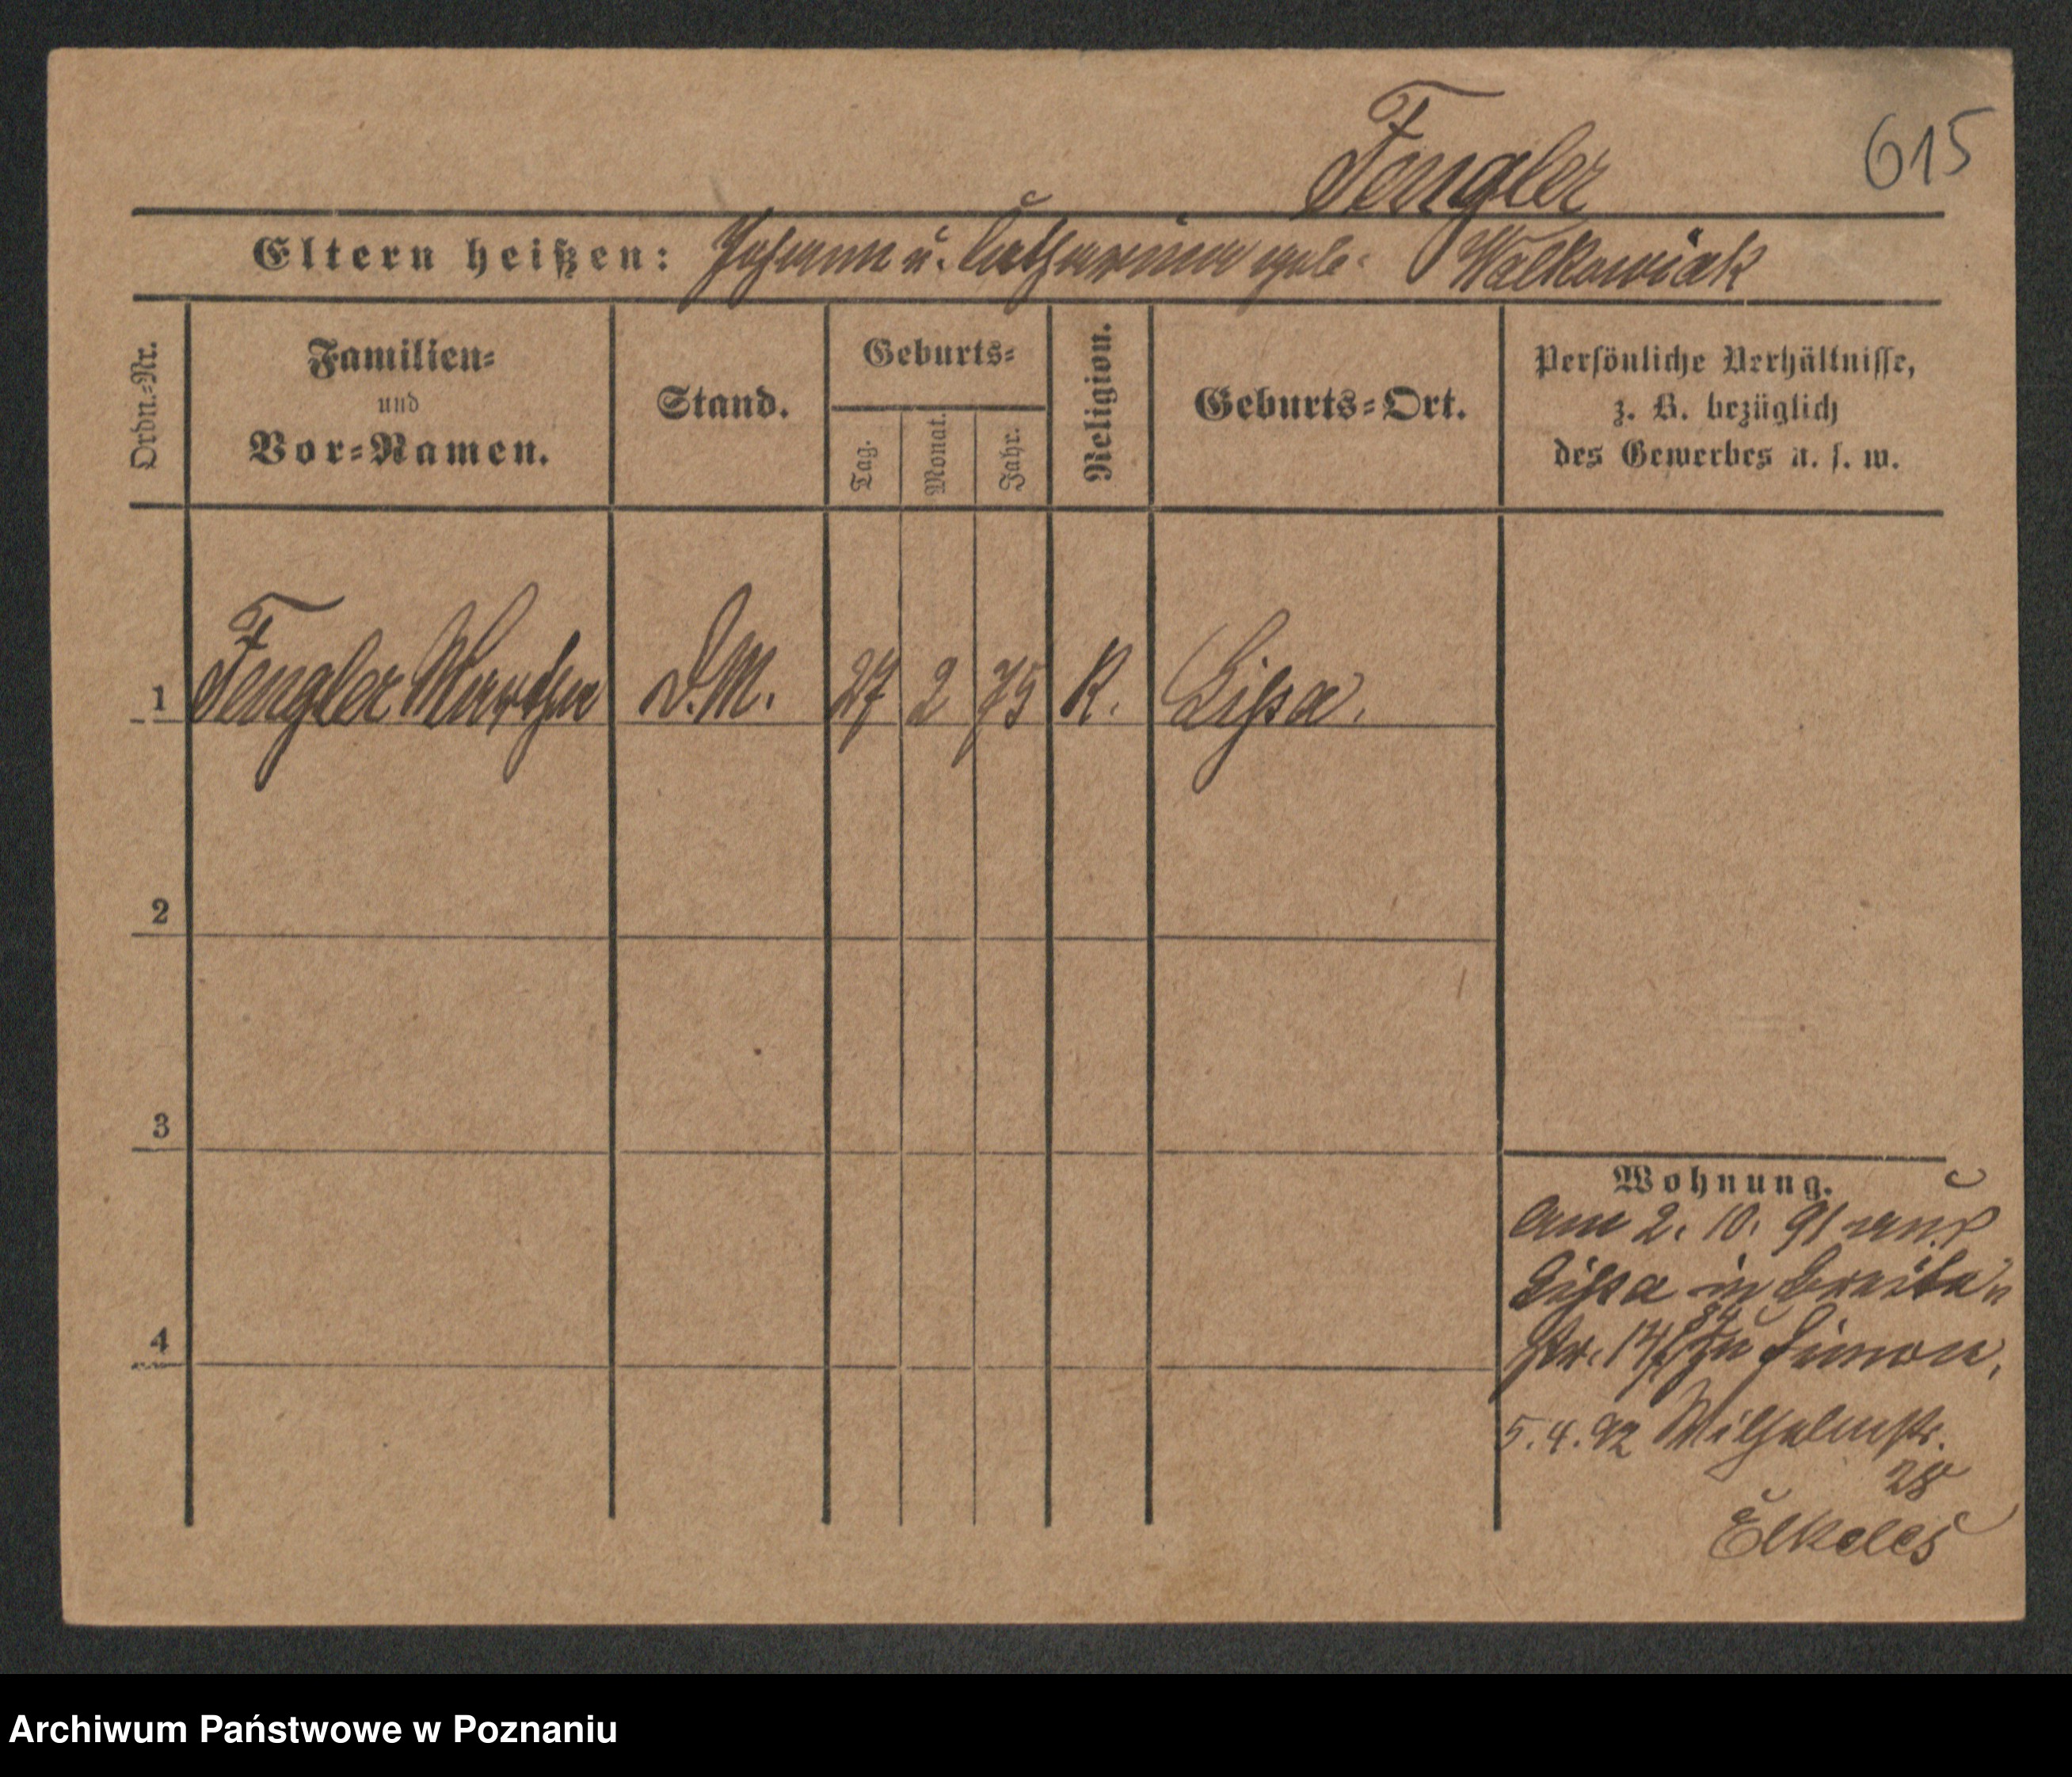 Fengler 615
Eltern heißen: Johann u. Catharina geb. Walkowiak
Ordn.-Nr.
Familien-
und
Vor-Namen.
Stand.
Geburts-
Tag.
Monat.
Jahr.
Religion.
Geburts-Ort.
Persönliche Verhältnisse,
z. B. bezüglich
des Gewerbes u. s. w.
1 Fengler Martha D.M. 27 2 75 K. Lissa.
2
3
4
Wohnung.
Am 2. 10. 91 aus
Lissa in Breite
str. 14 zu Simon.
5.4.92 Wilhelmstr.
28
Elkeles
Archiwum Państwowe w Poznaniu